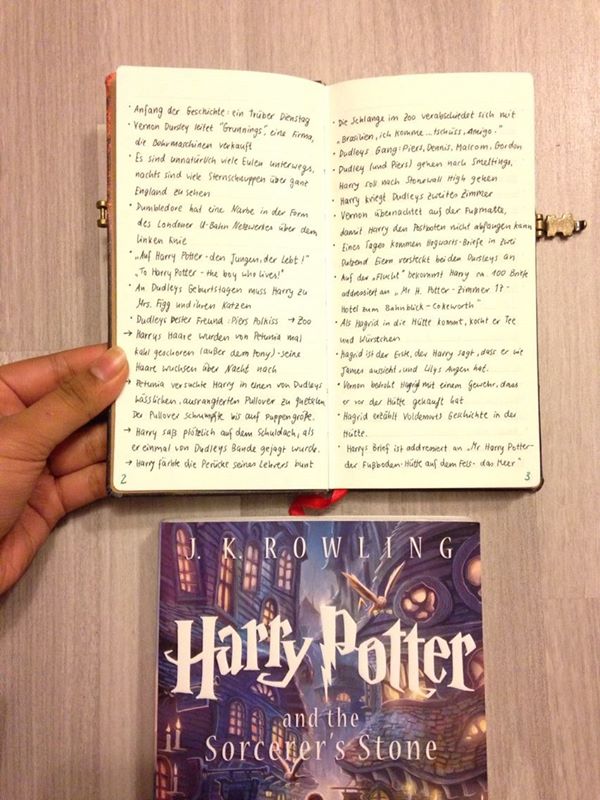 • Anfang der Geschichte: ein trüber Dienstag
• Vernon Dursley leitet "Grunnings", eine Firma,
die Bohrmaschinen verkauft
• Es sind unnatürlich viele Eulen unterwegs,
nachts sind viele Sternschnuppen über ganz
England zu sehen
• Dumbledore hat eine Narbe in der Form
des Londoner U-Bahn Netzwerkes über dem
linken Knie
• „Auf Harry Potter - den Jungen, der lebt!"
„To Harry Potter - the boy who lives!"
• An Dudleys Geburtstagen muss Harry zu
Mrs. Figg und ihren Katzen
• Dudleys bester Freund: Piers Polkiss → Zoo
→ Harrys Haare wurden von Petunia mal
kahl geschoren (außer dem Pony) - seine
Haare wuchsen über Nacht nach
→ Petunia versuchte Harry in einen von Dudleys
hässlichen, ausrangierten Pullover zu quetschen
Der Pullover schrumpfte bis auf Puppengröße.
→ Harry saß plötzlich auf dem Schuldach, als
er einmal von Dudleys Bande gejagt wurde.
→ Harry färbte die Perücke seines Lehrers bunt
2
• Die Schlange im Zoo verabschiedet sich mit
„Brasilien, ich komme... tschüss, Amigo."
• Dudleys Gang: Piers, Dennis, Malcom, Gordon
• Dudley (und Piers) gehen nach Smeltings,
Harry soll nach Stonewall High gehen
• Harry kriegt Dudleys zweites Zimmer
• Vernon übernachtet auf der Fußmatte,
damit Harry den Postboten nicht abfangen kann
• Eines Tages kommen Hogwarts-Briefe in zwei
Dutzend Eiern versteckt bei den Dursleys an
• Auf der „Flucht" bekommt Harry ca. 100 Briefe
addressiert an „Mr H. Potter - Zimmer 17 -
Hotel zum Bahnblick - Cokeworth"
• Als Hagrid in die Hütte kommt, kocht er Tee
und Würstchen
• Hagrid ist der Erste, der Harry sagt, dass er wie
James aussieht, und Lilys Augen hat.
• Vernon bedroht Hagrid mit einem Gewehr, dass
er vor der Hütte gekauft hat
• Hagrid erzählt Voldemorts Geschichte in der
Hütte.
• Harrys Brief ist addressiert an „Mr Harry Potter -
der Fußboden - Hütte auf dem Fels - das Meer"
3
J. K. ROWLING
Harry Potter
and the
Sorcerer's Stone